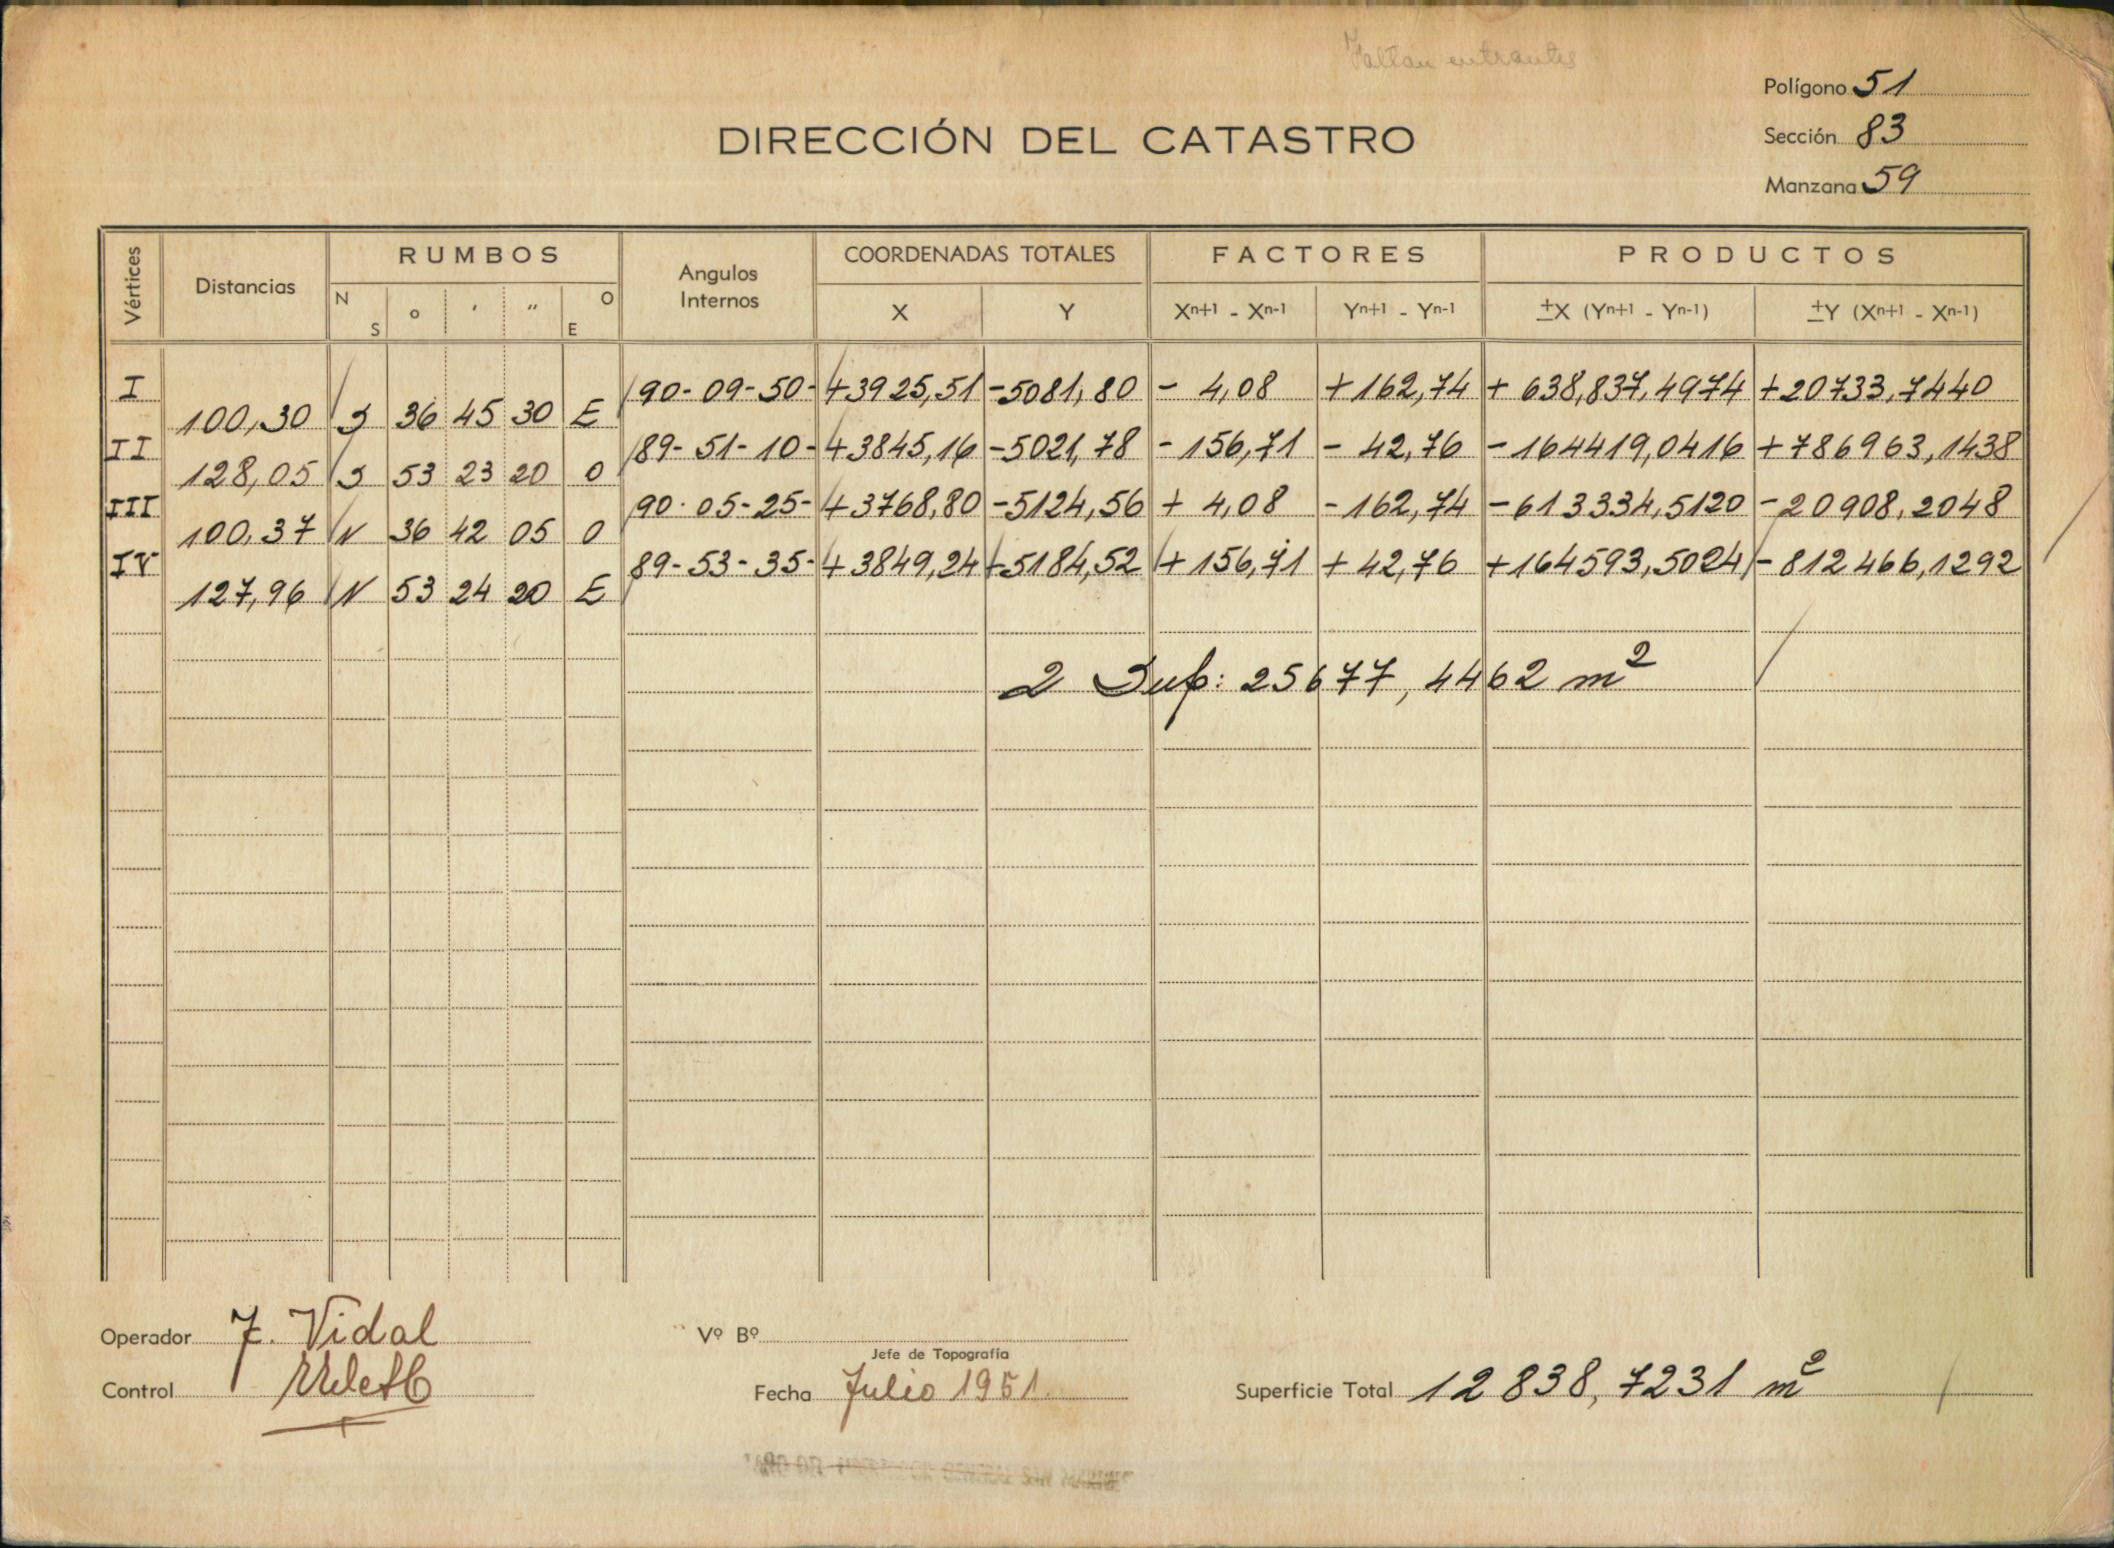 Faltan entrantes
Polígono 51
Sección 83
Manzana 59
DIRECCIÓN DEL CATASTRO
Vértices Distancias RUMBOS Angulos Internos COORDENADAS TOTALES FACTORES PRODUCTOS
N S o ' " O E X Y Xn+1 - Xn-1 Yn+1 - Yn-1 ±X (Yn+1 - Yn-1) ±Y (Xn+1 - Xn-1)
I 90-09-50- +3925,51 -5081,80 - 4,08 +162,74 + 638,837,4974 +20733,7440
100,30 S 36 45 30 E
II 89-51-10- +3845,16 -5021,78 -156,71 - 42,76 -164419,0416 +786963,1438
128,05 S 53 23 20 O
III 90-05-25- +3768,80 -5124,56 + 4,08 -162,74 -613334,5120 -20908,2048
100,37 N 36 42 05 O
IV 89-53-35- +3849,24 -5184,52 +156,71 +42,76 +164593,5024 -812466,1292
127,96 N 53 24 20 E
2 Sup: 25677,4462 m²
Operador J. Vidal
Control
Vº Bº
Jefe de Topografía
Fecha Julio 1951.
Superficie Total 12838,7231 m²